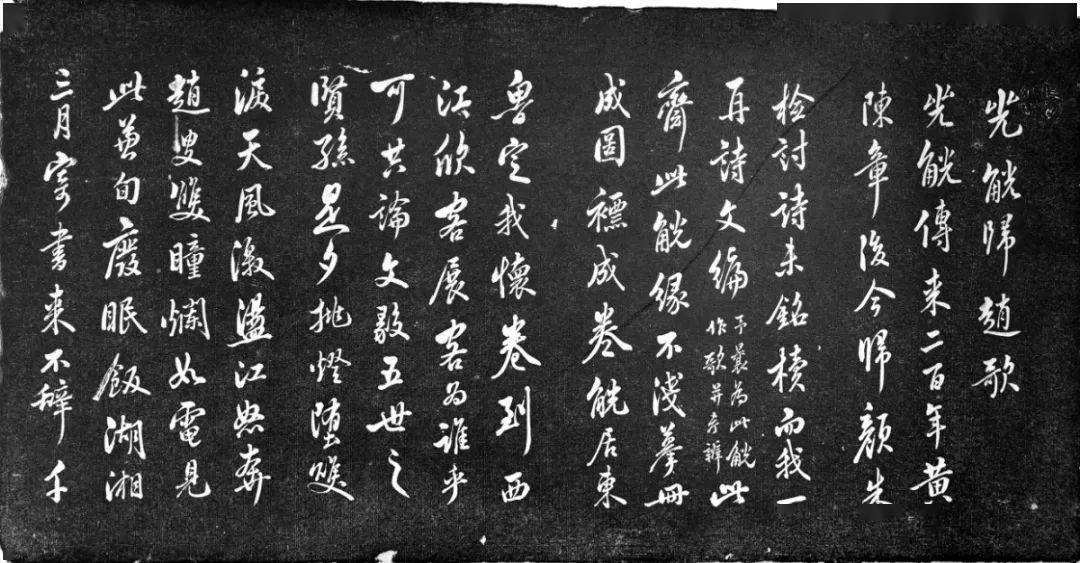 兕觥歸趙歌
兕觥傳来二百年黄
陳章後今歸顏先
檢討詩未銘櫝而我一
再詩文編予曩為此觥作歌并考辨此
齋此觥緣不淺摹冊
成圖褾成卷觥居東
魯定我懷卷到西
江欣客展客為誰乎
可共論文毅五世之
賢孫是夕挑燈墮雙
淚天風激盪江怒奔
趙叟雙瞳爛如電見
此兼旬廢眠飯湖湘
三月寄書来不辭千